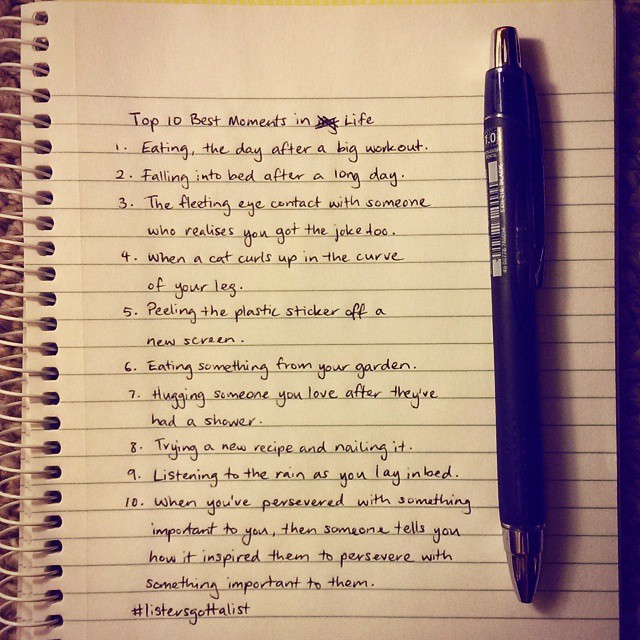 Top 10 Best Moments in Life
1. Eating, the day after a big workout.
2. Falling into bed after a long day.
3. The fleeting eye contact with someone
who realises you got the joke too.
4. When a cat curls up in the curve
of your leg.
5. Peeling the plastic sticker off a
new screen.
6. Eating something from your garden.
7. Hugging someone you love after they've
had a shower.
8. Trying a new recipe and nailing it.
9. Listening to the rain as you lay in bed.
10. When you've persevered with something
important to you, then someone tells you
how it inspired them to persevere with
something important to them.
#listersgottalist
1.0